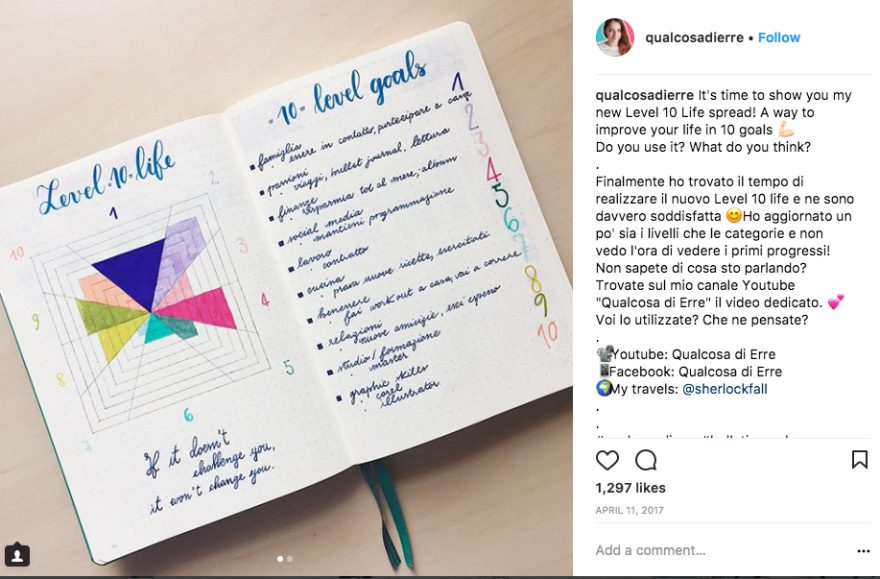 Level 10 life
1
2
3
4
5
6
7
8
9
10
If it doesn't
challenge you,
it won't change you.
10 level goals
famiglia
essere in contatto, partecipare a casa
passioni
viaggi, bullet journal, lettura
finanze
risparmia tot al mese, album
social media
mantieni programmazione
lavoro
contratto
cucina
prova nuove ricette, esercitati
benessere
fai work out a casa, vai a correre
relazioni
nuove amicizie, esci spesso
studio / formazione
master
graphic skills
corel
illustrator
1
2
3
4
5
6
7
8
9
10
qualcosadierre • Follow
qualcosadierre It's time to show you my
new Level 10 Life spread! A way to
improve your life in 10 goals 💪🏻
Do you use it? What do you think?
.
Finalmente ho trovato il tempo di
realizzare il nuovo Level 10 life e ne sono
davvero soddisfatta 😊Ho aggiornato un
po' sia i livelli che le categorie e non
vedo l'ora di vedere i primi progressi!
Non sapete di cosa sto parlando?
Trovate sul mio canale Youtube
"Qualcosa di Erre" il video dedicato. 💕
Voi lo utilizzate? Che ne pensate?
.
📽Youtube: Qualcosa di Erre
📱Facebook: Qualcosa di Erre
🌍My travels: @sherlockfall
.
.
1,297 likes
APRIL 11, 2017
Add a comment...